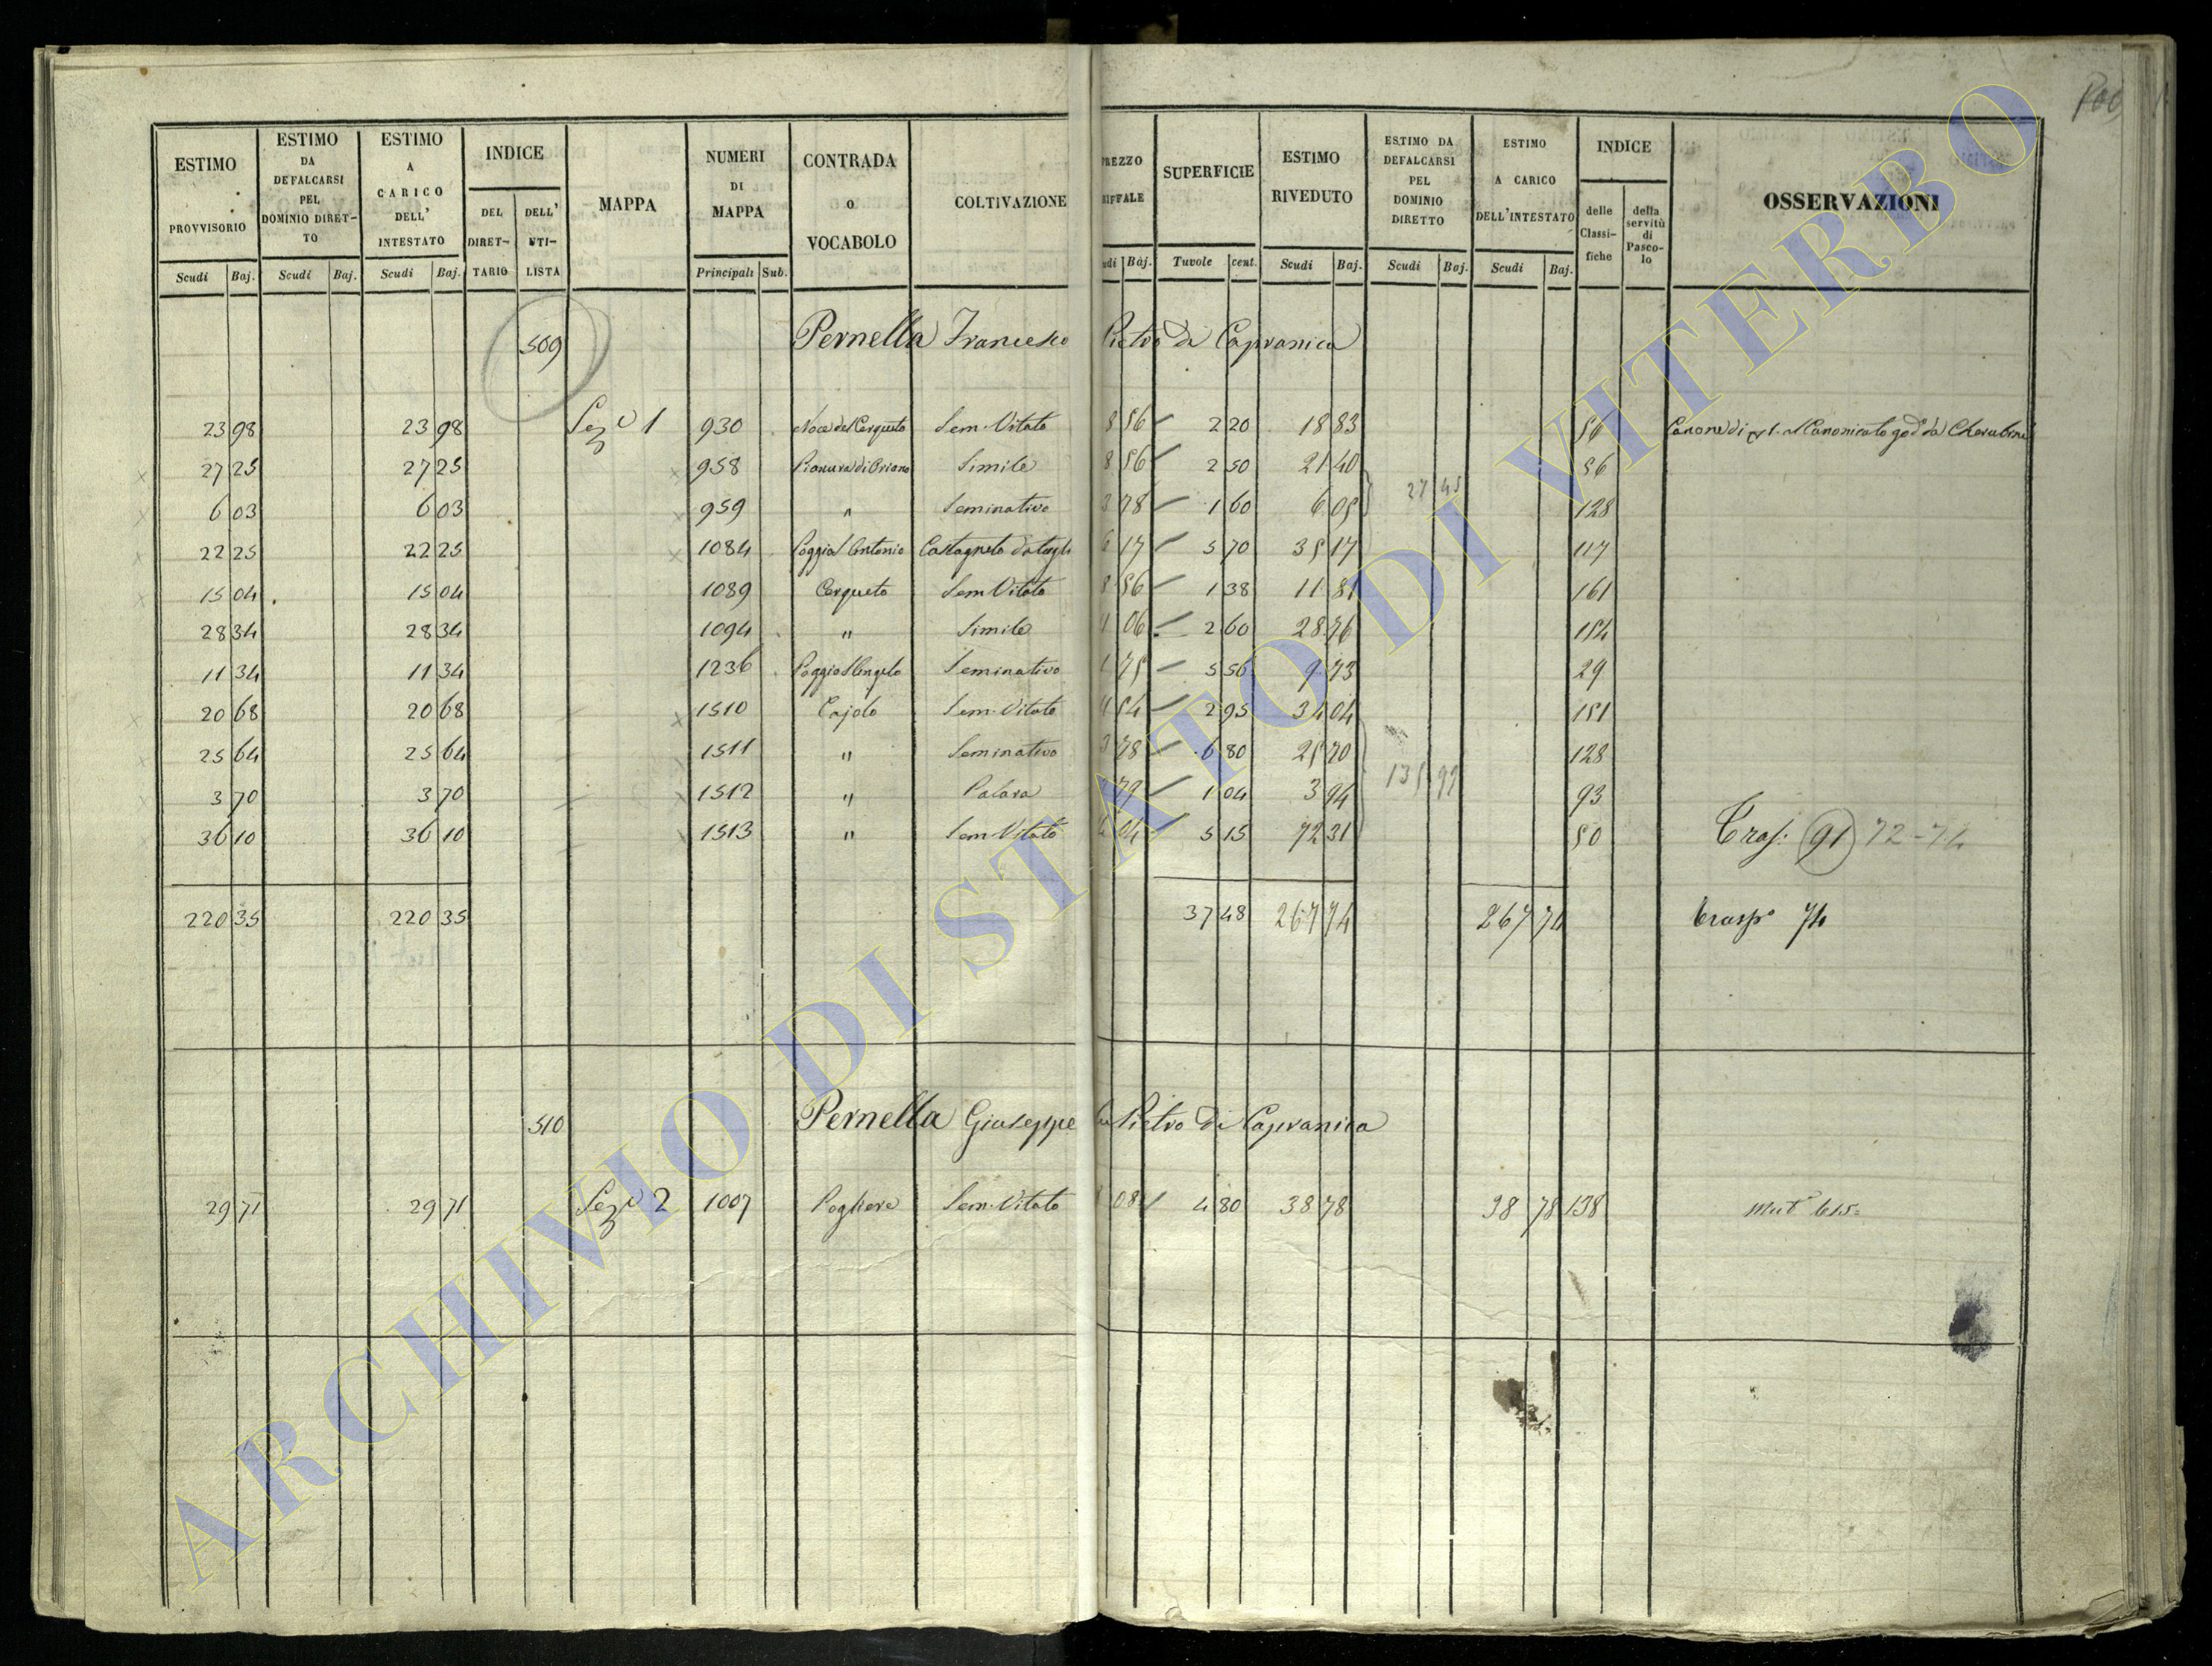 ESTIMO PROVVISORIO Scudi Baj. ESTIMO DA DEFALCARSI PEL DOMINIO DIRETTO Scudi Baj. ESTIMO A CARICO DELL' INTESTATO Scudi Baj. INDICE DEL DIRETTARIO DELL' UTILISTA MAPPA NUMERI DI MAPPA Principali Sub. CONTRADA O VOCABOLO COLTIVAZIONE SUPERFICIE Tuvole cent. ESTIMO RIVEDUTO Scudi Baj. ESTIMO DA DEFALCARSI PEL DOMINIO DIRETTO Scudi Baj. ESTIMO A CARICO DELL'INTESTATO Scudi Baj. INDICE delle Classifiche della servitù di Pascolo OSSERVAZIONI
509 Pernella Francesco Pietro di Capranica
23 98 23 98 Sez 1 930 Noce del Cerqueto Sem. Vitato 8 56 2 20 18 83 56 Canone di al Canonicato god da Cherubini
27 25 27 25 958 Pianura di Oriano Simile 8 56 2 50 21 40 56
27 45
6 03 6 03 959 " Seminativo 3 78 1 60 6 05 128
22 25 22 25 1084 Poggio S Antonio Castagneto da tagli 6 17 5 70 35 17 117
15 04 15 04 1089 Cerqueto Sem Vitato 8 56 1 38 11 81 161
28 34 28 34 1094 " Simile 06 2 60 28 76 154
11 34 11 34 1236 Poggio S Angelo Seminativo 1 75 5 56 9 73 29
20 68 20 68 1510 Cajolo Sem. Vitato 54 2 95 34 04 151
25 64 25 64 1511 " Seminativo 3 78 6 80 25 70 128
135 99
3 70 3 70 1512 " Palara 79 1 04 3 94 93
36 10 36 10 1513 " Sem Vitato 04 5 15 72 31 50 Trasp. 91 72-74
220 35 220 35 37 48 267 74 267 74 Trasp° 74
510 Pernella Giuseppe fu Pietro di Capranica
29 71 29 71 Sez 2 1007 Pogliere Sem. Vitato 08 4 80 38 78 38 78 138 Mut 615
ARCHIVIO DI STATO DI VITERBO